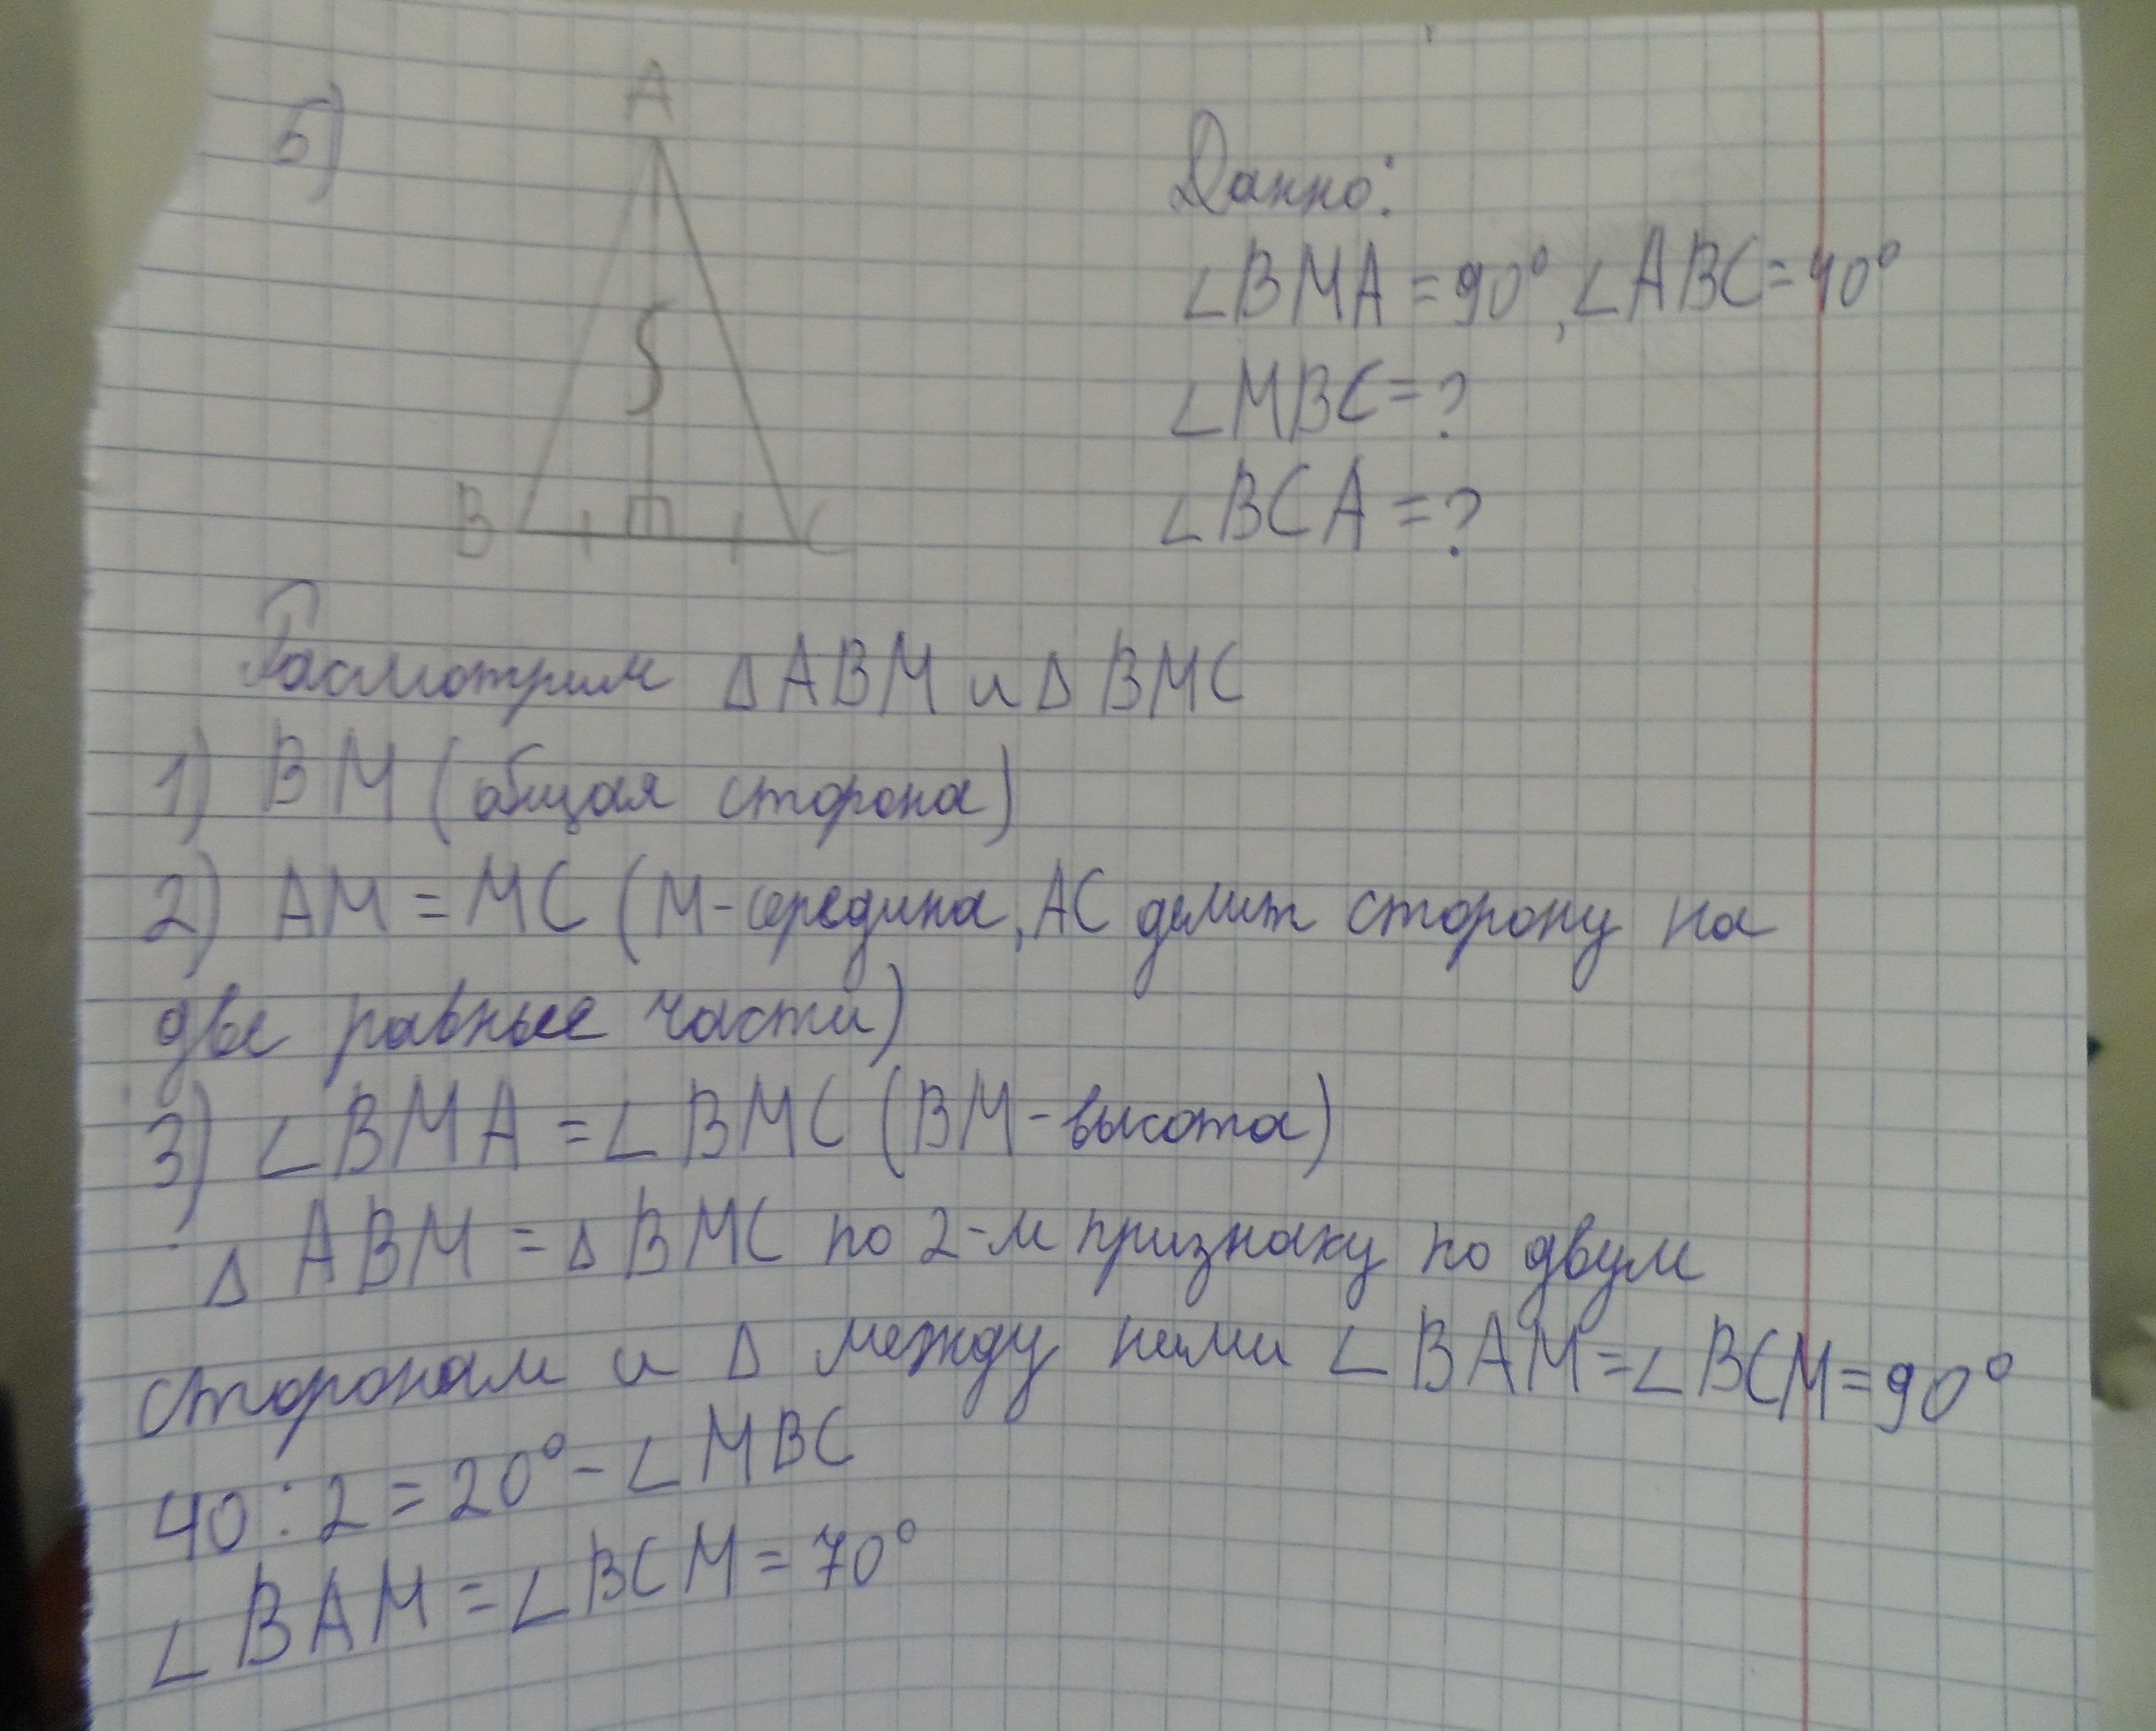 5)
A
B
C
Данно:
∠BMA = 90°, ∠ABC = 40°
∠MBC = ?
∠BCA = ?
Расмотрим △ABM и △BMC
1) BM (общая сторона)
2) AM = MC (M-середина, AC делит сторону на
две равные части)
3) ∠BMA = ∠BMC (BM-высота)
△ABM = △BMC по 2-м признаку по двум
сторонам и △ между ними ∠BAM = ∠BCM = 90°
40 : 2 = 20° - ∠MBC
∠BAM = ∠BCM = 70°